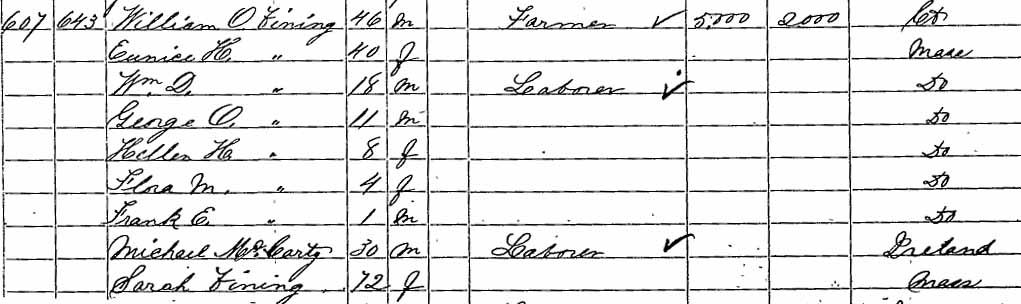 607 643 William O. Fining 46 m Farmer ✓ 5,000 2,000 Ct
Eunice H. " 40 f Mass
Wm. D. " 18 m Laborer ✓ Do
George O. " 11 m Do
Hellen H. " 8 f Do
Flora M. " 4 f Do
Frank E. " 1 m Do
Michael McCarty 30 m Laborer ✓ Ireland
Sarah Fining 72 f Mass